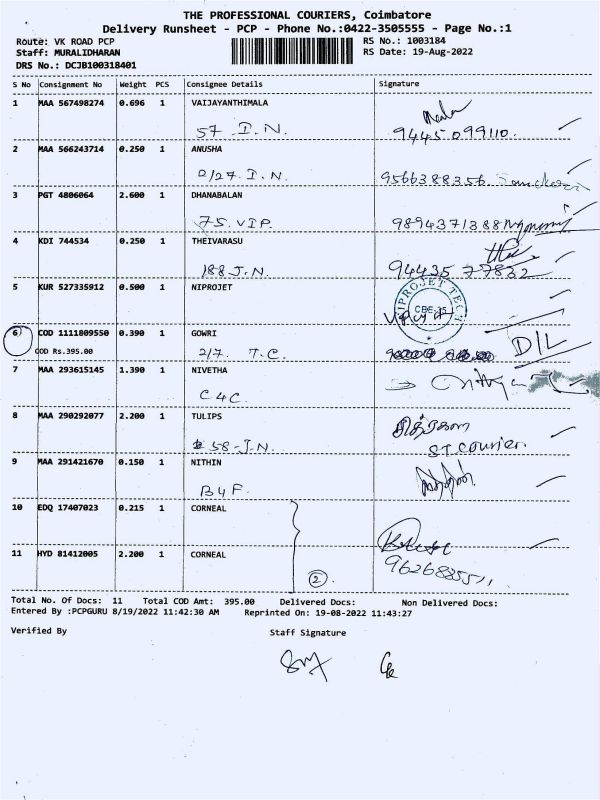 THE PROFESSIONAL COURIERS, Coimbatore
Delivery Runsheet - PCP - Phone No.:0422-3505555 - Page No.:1
Route: VK ROAD PCP
RS No.: 1003184
Staff: MURALIDHARAN
RS Date: 19-Aug-2022
DRS No.: DCJB100318401
S No Consignment No Weight PCS Consignee Details Signature
1 MAA 567498274 0.696 1 VAIJAYANTHIMALA
57 I.N. 9445099110.
2 MAA 566243714 0.250 1 ANUSHA
2/27. I.N. 9566388356.
3 PGT 4806064 2.600 1 DHANABALAN
75. VIP. 9894371388
4 KDI 744534 0.250 1 THEIVARASU
188 J.N. 94435 77832
5 KUR 527335912 0.500 1 NIPROJET
NIPROJET TECH
CBE-35
6 COD 1111809550 0.390 1 GOWRI
COD Rs.395.00 2/7. T.C. D/L
7 MAA 293615145 1.390 1 NIVETHA
C4C.
8 MAA 290292077 2.200 1 TULIPS
58-J.N. ST.Courier.
9 MAA 291421670 0.150 1 NITHIN
B4F.
10 EDQ 17407023 0.215 1 CORNEAL
11 HYD 81412005 2.200 1 CORNEAL
2.
Total No. Of Docs: 11 Total COD Amt: 395.00 Delivered Docs: Non Delivered Docs:
Entered By :PCPGURU 8/19/2022 11:42:30 AM Reprinted On: 19-08-2022 11:43:27
Verified By Staff Signature